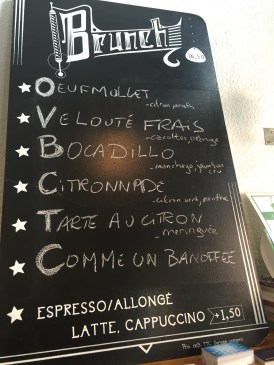 Brunch
16,50
OEUF MOLLET
- citron, aneth
VELOUTÉ FRAIS
- carottes, orange
BOCADILLO
- manchego, jambon
cru
CITRONNADE
- citron vert, menthe
TARTE AU CITRON
- meringuée
COMME UN BANOFFEE
ESPRESSO/ALLONGÉ
LATTE, CAPPUCCINO +1,50
Prix nets TTC, Service compris